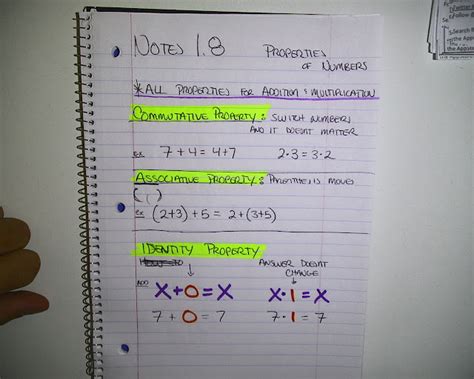 NOTES 1.8 PROPERTIES
OF NUMBERS
*ALL PROPERTIES FOR ADDITION & MULTIPLICATION
COMMUTATIVE PROPERTY: SWITCH NUMBERS
AND IT DOESNT MATTER
ex 7+4=4+7 2·3=3·2
ASSOCIATIVE PROPERTY: PARENTHESIS MOVES
( )
ex (2+3)+5=2+(3+5)
IDENTITY PROPERTY
ANSWER DOESNT
CHANGE
ADD
X+0=X X·1=X
7+0=7 7·1=7